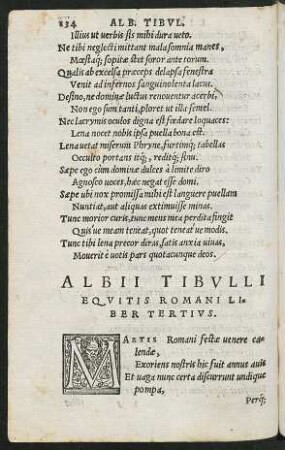 134 ALB. TIBVL.
Illius ut uerbis sis mihi dura ueto.
Ne tibi neglecti mittant mala somnia manes,
Mœstaq; sopitæ stet soror ante torum.
Qualis ab excelsa præceps delapsa fenestra
Venit ad infernos sanguinolenta lacus.
Desino, ne dominæ luctus renouentur acerbi,
Non ego sum tanti, ploret ut illa semel.
Nec lacrymis oculos digna est fœdare loquaces:
Lena nocet nobis ipsa puella bona est.
Lena uetat miserum Phryne, furtimq; tabellas
Occulto portans itq;, reditq; sinu.
Sæpe ego cum dominæ dulces à limite diro
Agnosco uoces, hæc negat esse domi.
Sæpe ubi nox promissa mihi est languere puellam
Nuntiat, aut aliquas extimuisse minas.
Tunc morior curis, tunc mens mea perdita fingit
Quis'ue meam teneat, quot teneat'ue modis.
Tunc tibi lena precor diras, satis anxia uiuas,
Mouerit è uotis pars quotacunque deos.
ALBII TIBVLLI
EQVITIS ROMANI LI-
BER TERTIVS.
MARTIS Romani festæ uenere ca-
lendæ,
Exoriens nostris hic fuit annus auis
Et uaga nunc certa discurrunt undique
pompa,
Perq;